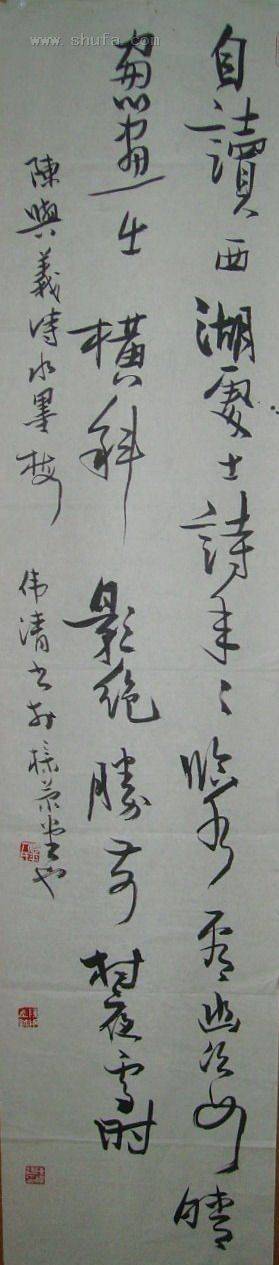 www.shufa.com
自讀西湖處士詩年〻臨水看幽姿晴
窗畫出橫斜影絕勝前村夜雪时
陳與義詩水墨梅 伟清书於